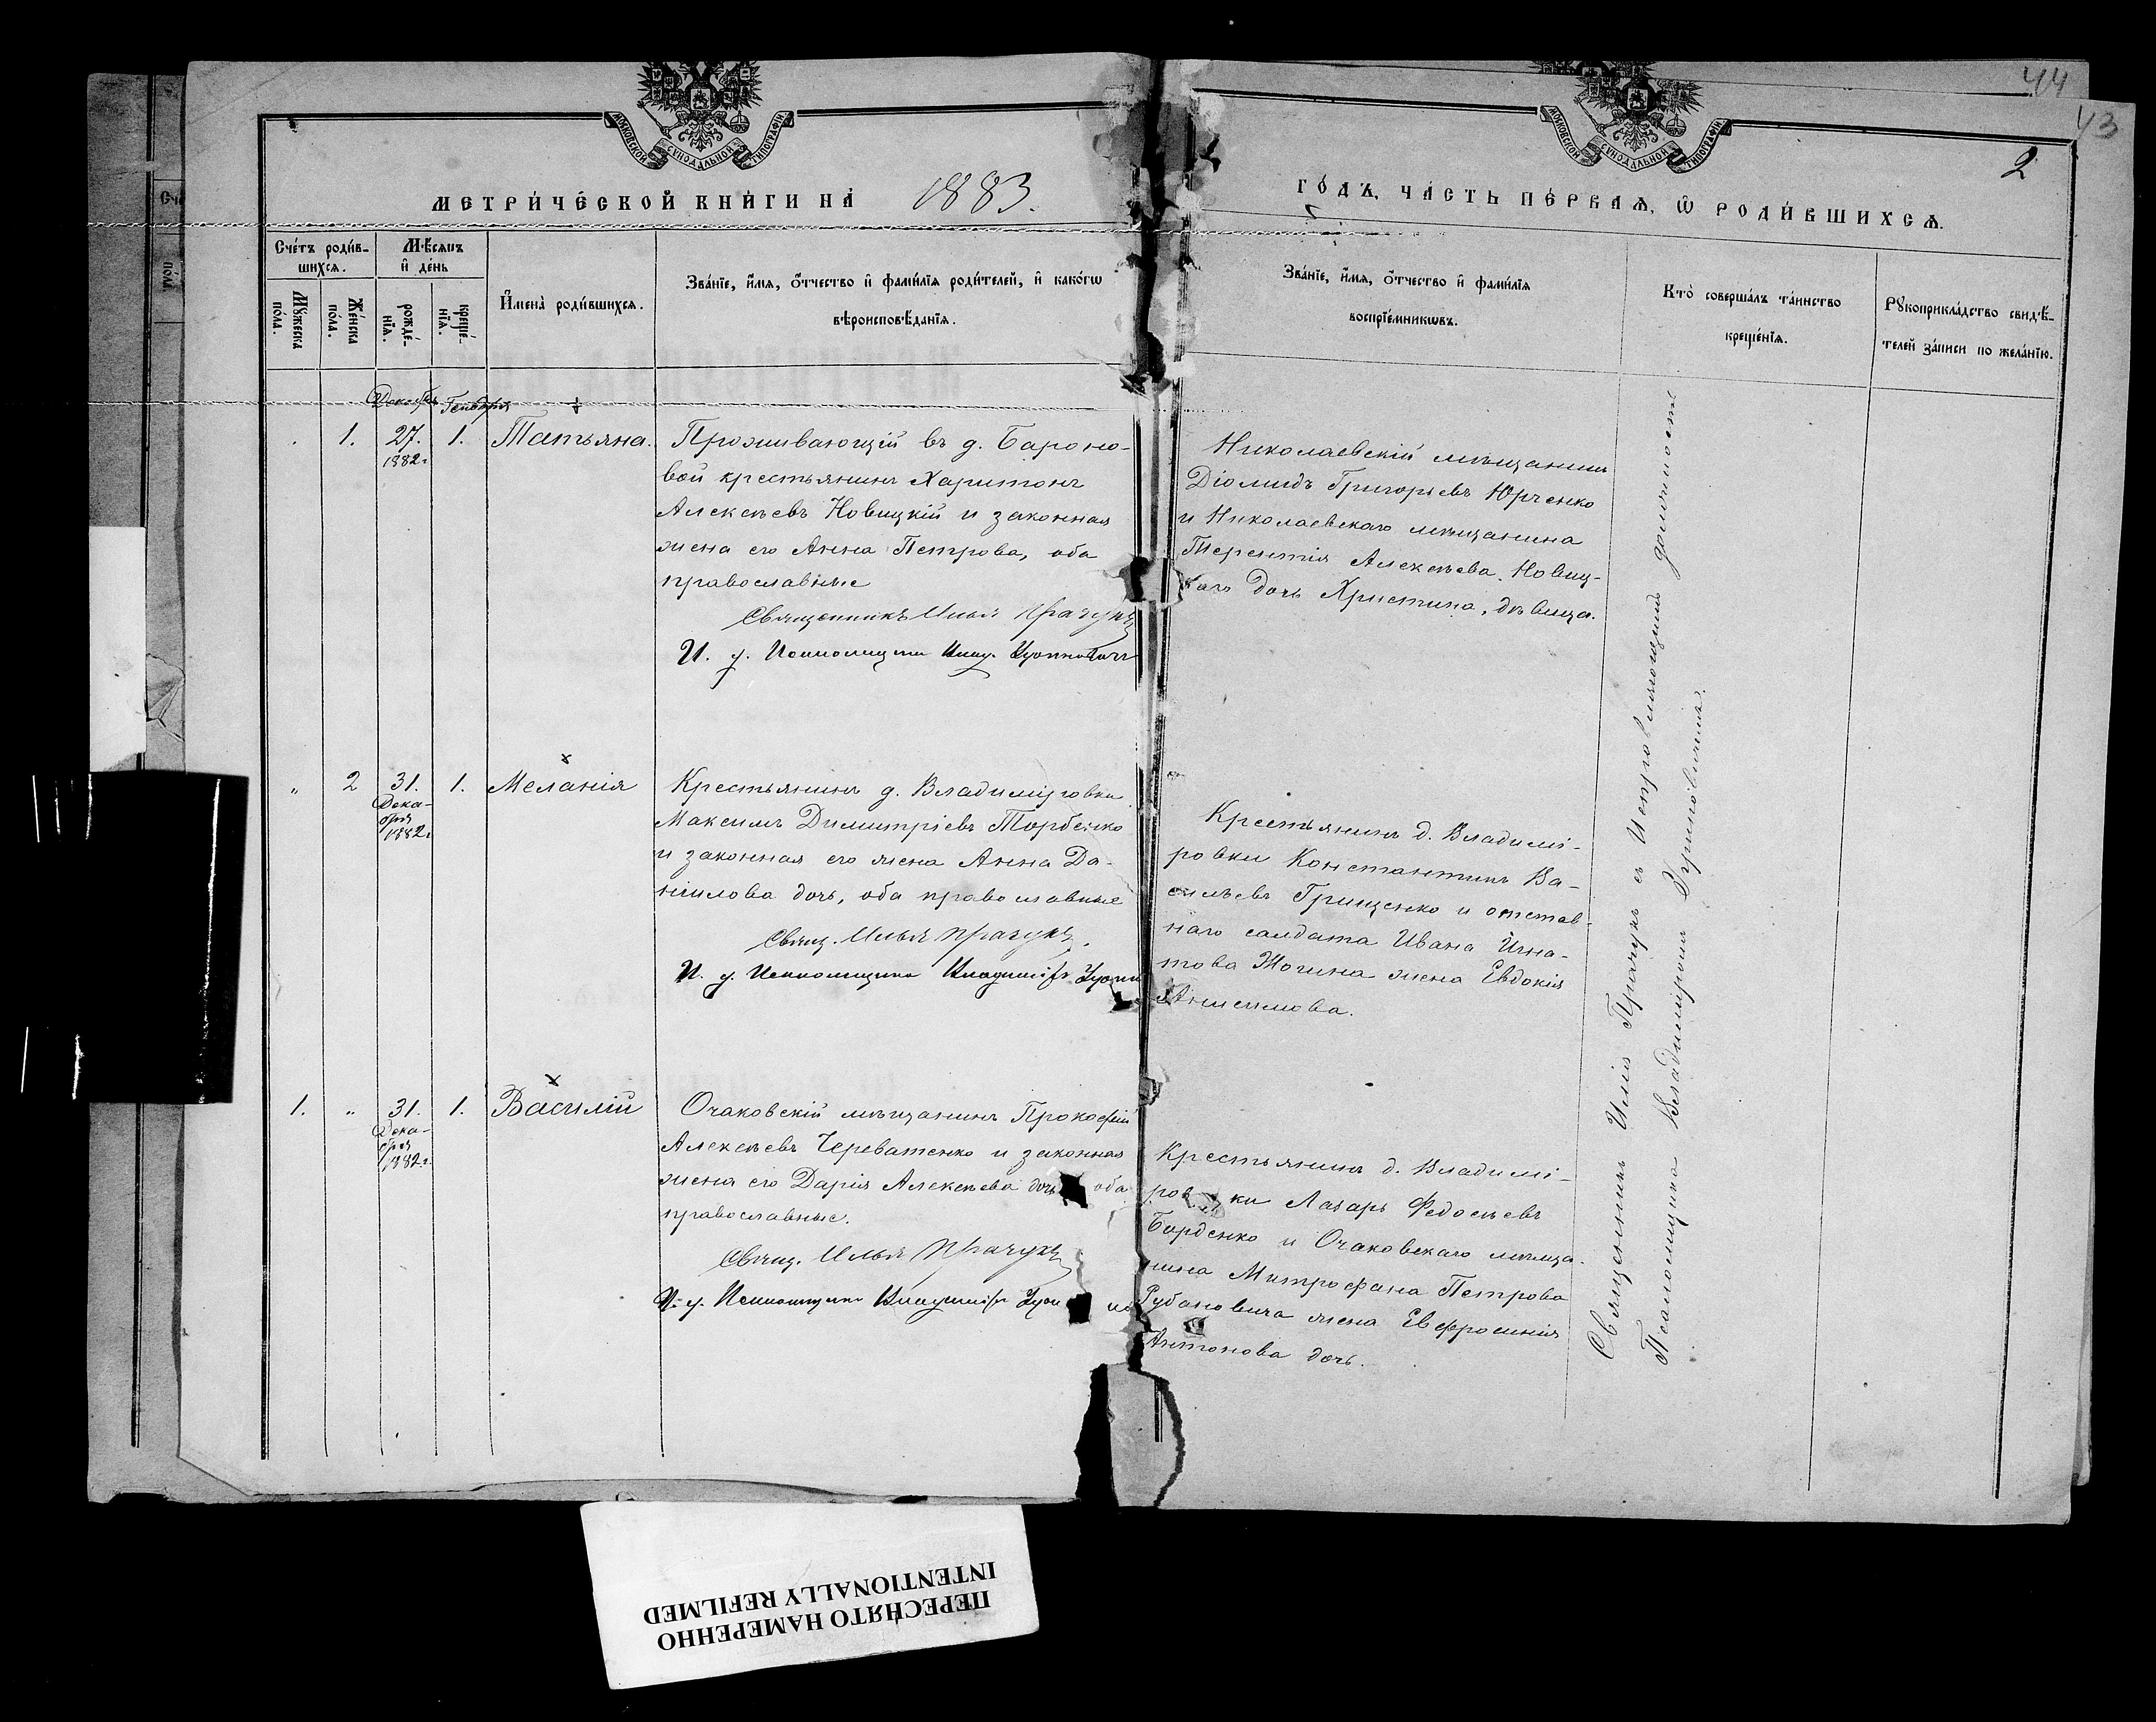 44
43
2
МОСКОВСКОЙ СѴНОДАЛЬНОЙ ТИПОГРАФІИ
МОСКОВСКОЙ СѴНОДАЛЬНОЙ ТИПОГРАФІИ
МЕТРИ́ЧЕСКОЙ КНИ́ГИ НА̀ 1883.
ГО́ДЪ, ЧА́СТЬ ПЕ́РВАѦ, Ѡ҆ РОДИ́ВШИХСѦ.
Сче́тъ роди́в-
шихсѧ.
Мꙋ́жеска по́ла.
Же́нска по́ла.
Мѣ́сѧцъ
и҆ де́нь
рожде́-
нїѧ.
креще́-
нїѧ.
И҆мена̀ роди́вшихсѧ.
Зва́нїе, и҆́мѧ, ѻ҆́тчество и҆ фами́лїѧ роди́телей, и҆ како́гѡ
вѣроисповѣ́данїѧ.
Зва́нїе, и҆́мѧ, ѻ҆́тчество и҆ фами́лїѧ
воспрїе́мникѡвъ.
Кто̀ соверша́лъ та́инство
креще́нїѧ.
Рꙋкоприкла́дство свидѣ́-
телей за́писи по жела́нїю.
Декабря Генваря
1. 27. 1. Татьяна.
1882 г.
Проживающій въ д. Бароно-
вой крестьянинъ Харитонъ
Алексѣевъ Новицкій и законная
жена его Анна Петрова, оба
православные
Священникъ Илья Прачукъ
И. д. Псаломщика
Николаевскій мѣщанинъ
Діомидъ Григорьевъ Юрченко
и Николаевскаго мѣщанина
Терентія Алексѣева Новиц-
каго дочь Христина, дѣвица.
" 2 31. 1. Меланія
Дека-
бря
1882 г.
Крестьянинъ д. Владиміровки
Максимъ Димитріевъ Торбенко
и законная его жена Анна Да-
ніилова дочь, оба православные
Свящ. Илья Прачукъ.
И. д. Псаломщика Владиміръ
Крестьянинъ д. Владимі-
ровки Константинъ Ва-
сильевъ Грищенко и отстав-
наго солдата Ивана Игна-
това Жогина жена Евдокія
Анисимова.
1. " 31. 1. Василій
Дека-
бря
1882 г.
Очаковскій мѣщанинъ Прокофій
Алексѣевъ Череватенко и законная
жена его Дарія Алексѣева дочь оба
православные.
Свящ. Илья Прачукъ
И. д. Псаломщика Владиміръ
Крестьянинъ д. Владимі-
ровки Лазарь Федосѣевъ
Борденко и Очаковскаго мѣща-
нина Митрофана Петрова
Рубановича жена Евфросинія
Антонова дочь.
Священникъ Илія Прачукъ съ Исправляющимъ должность
Псаломщика Владиміромъ
ПЕРЕСНЯТО НАМЕРЕННО
INTENTIONALLY REFILMED